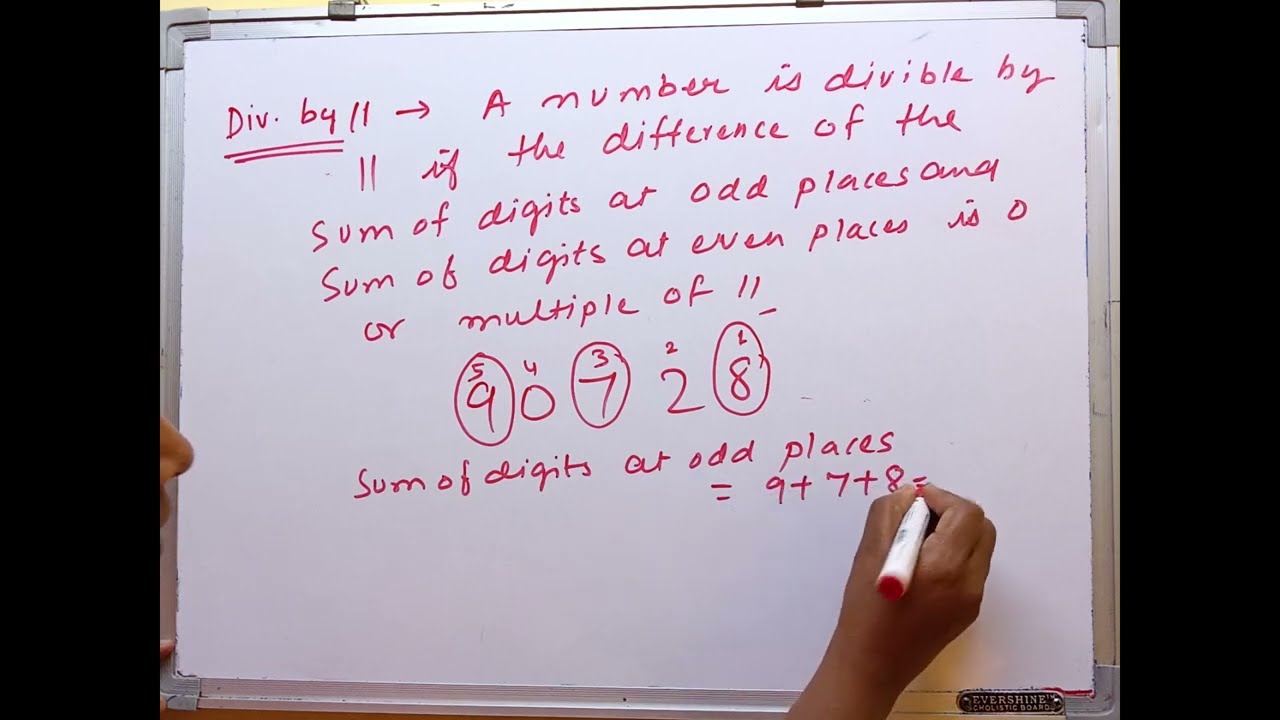 Div. by 11 → A number is divible by
11 if the difference of the
Sum of digits at odd places and
Sum of digits at even places is 0
or multiple of 11
5 4 3 2 1
9 0 7 2 8
Sum of digits at odd places
= 9+7+8=
EVERSHINE
CHOLISTIC BOARD